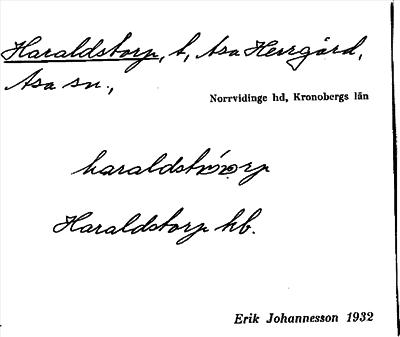 Haraldstorp, t, Asa Herrgård,
Asa sn.,
Norrvidinge hd, Kronobergs län
Haraldstorp hb.
Erik Johannesson 1932